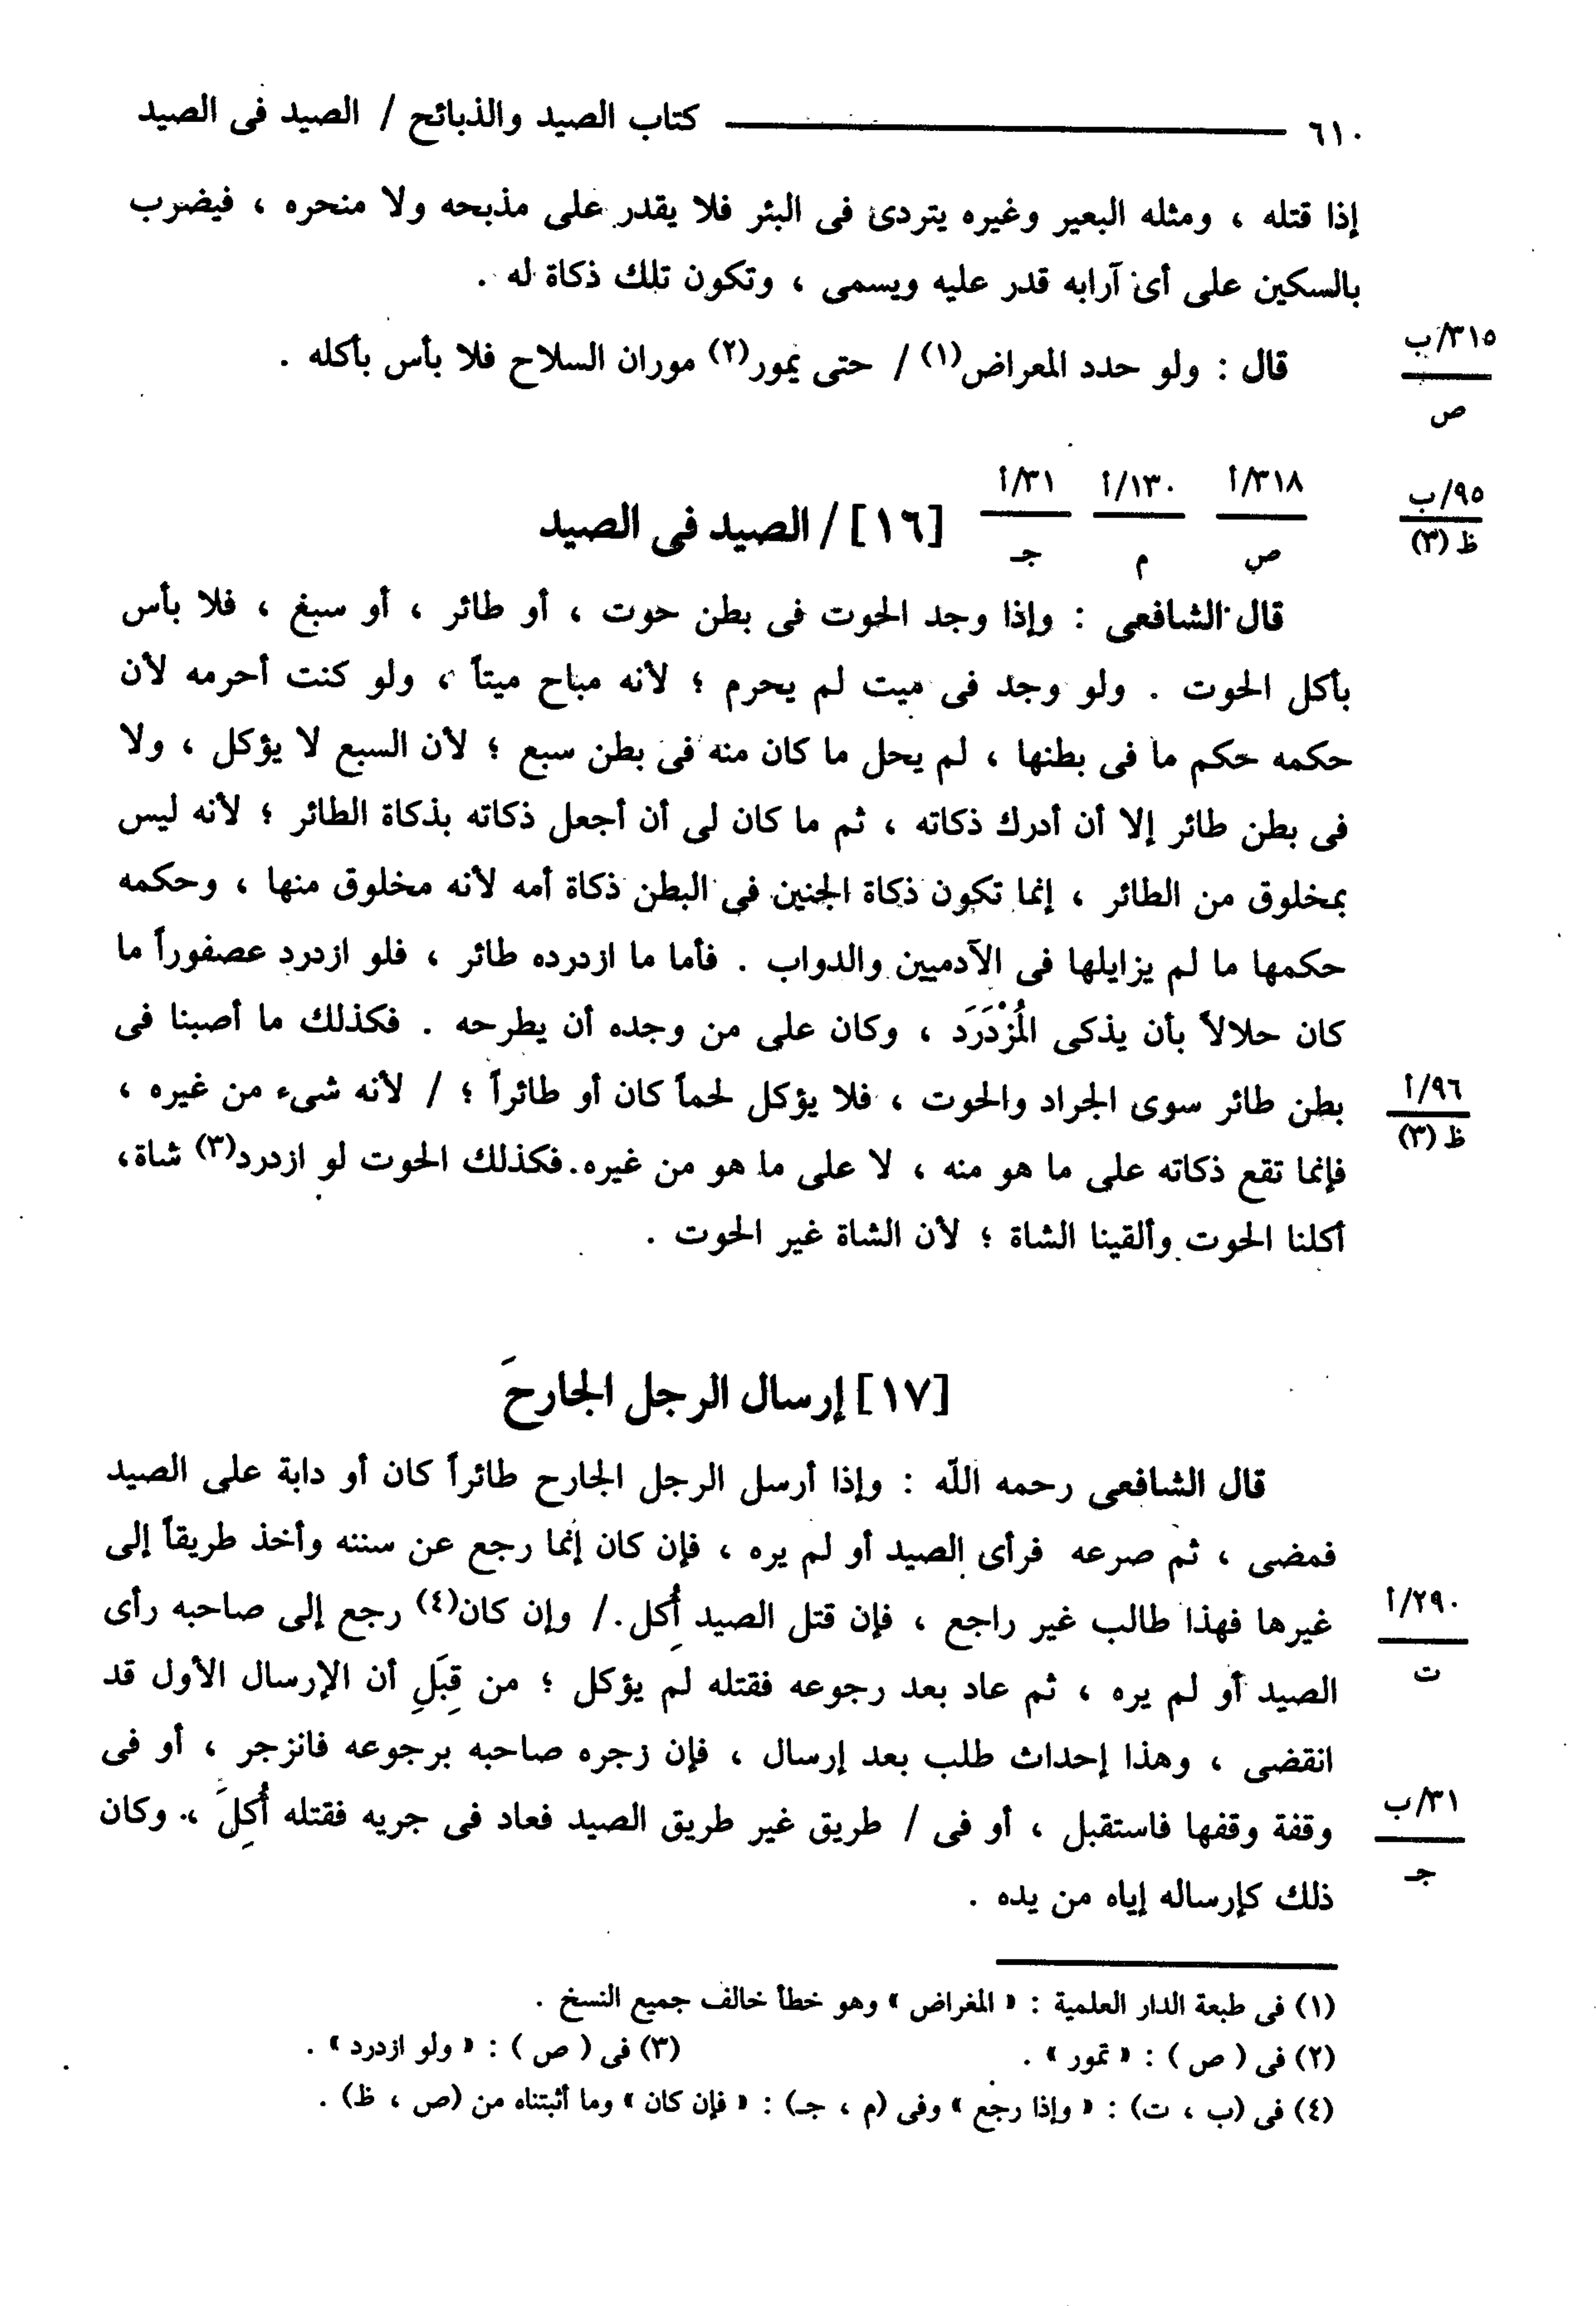 ٦١٠ ـــــــــــــــــ كتاب الصيد والذبائح / الصيد فى الصيد
إذا قتله ، ومثله البعير وغيره يتردى فى البئر فلا يقدر على مذبحه ولا منحره ، فيضرب
بالسكين على أى آرابه قدر عليه ويسمى ، وتكون تلك ذكاة له .
٣١٥/ب
ص
قال : ولو حدد المعراض(١) / حتى يمور(٢) موران السلاح فلا بأس بأكله .
٩٥/ب
ظ (٣)
٣١٨/أ
ص
١٣٠/أ
م
٣١/أ
جـ
[١٦] / الصيد فى الصيد
قال الشافعى : وإذا وجد الحوت فى بطن حوت ، أو طائر ، أو سبغ ، فلا بأس
بأكل الحوت . ولو وجد فى ميت لم يحرم ؛ لأنه مباح ميتاً ، ولو كنت أحرمه لأن
حكمه حكم ما فى بطنها ، لم يحل ما كان منه فى بطن سبع ؛ لأن السبع لا يؤكل ، ولا
فى بطن طائر إلا أن أدرك ذكاته ، ثم ما كان لى أن أجعل ذكاته بذكاة الطائر ؛ لأنه ليس
بمخلوق من الطائر ، إنما تكون ذكاة الجنين فى البطن ذكاة أمه لأنه مخلوق منها ، وحكمه
حكمها ما لم يزايلها فى الآدميين والدواب . فأما ما ازدرده طائر ، فلو ازدرد عصفوراً ما
كان حلالاً بأن يذكى المُزْدَرَد ، وكان على من وجده أن يطرحه . فكذلك ما أصبنا فى
بطن طائر سوى الجراد والحوت ، فلا يؤكل لحماً كان أو طائراً ؛ / لأنه شىء من غيره ،
٩٦/أ
ظ (٣)
فإنما تقع ذكاته على ما هو منه ، لا على ما هو من غيره. فكذلك الحوت لو ازدرد(٣) شاة،
أكلنا الحوت وألقينا الشاة ؛ لأن الشاة غير الحوت .
[١٧] إرسال الرجل الجارحَ
قال الشافعى رحمه الله : وإذا أرسل الرجل الجارح طائراً كان أو دابة على الصيد
فمضى ، ثم صرعه فرأى الصيد أو لم يره ، فإن كان إنما رجع عن سننه وأخذ طريقاً إلى
غيرها فهذا طالب غير راجع ، فإن قتل الصيد أُكِل . / وإن كان(٤) رجع إلى صاحبه رأى
٢٩٠/أ
ت
الصيد أو لم يره ، ثم عاد بعد رجوعه فقتله لم يؤكل ؛ من قِبَلِ أن الإرسال الأول قد
انقضى ، وهذا إحداث طلب بعد إرسال ، فإن زجره صاحبه برجوعه فانزجر ، أو فى
وقفة وقفها فاستقبل ، أو فى / طريق غير طريق الصيد فعاد فى جريه فقتله أُكِلَ ، وكان
٣١/ب
جـ
ذلك كإرساله إياه من يده .
(١) فى طبعة الدار العلمية : « المغراض » وهو خطأ خالف جميع النسخ .
(٢) فى ( ص ) : « تمور » . (٣) فى ( ص ) : « ولو ازدرد » .
(٤) فى (ب ، ت) : « وإذا رجع » وفى (م ، جـ) : « فإن كان » وما أثبتناه من (ص ، ظ) .